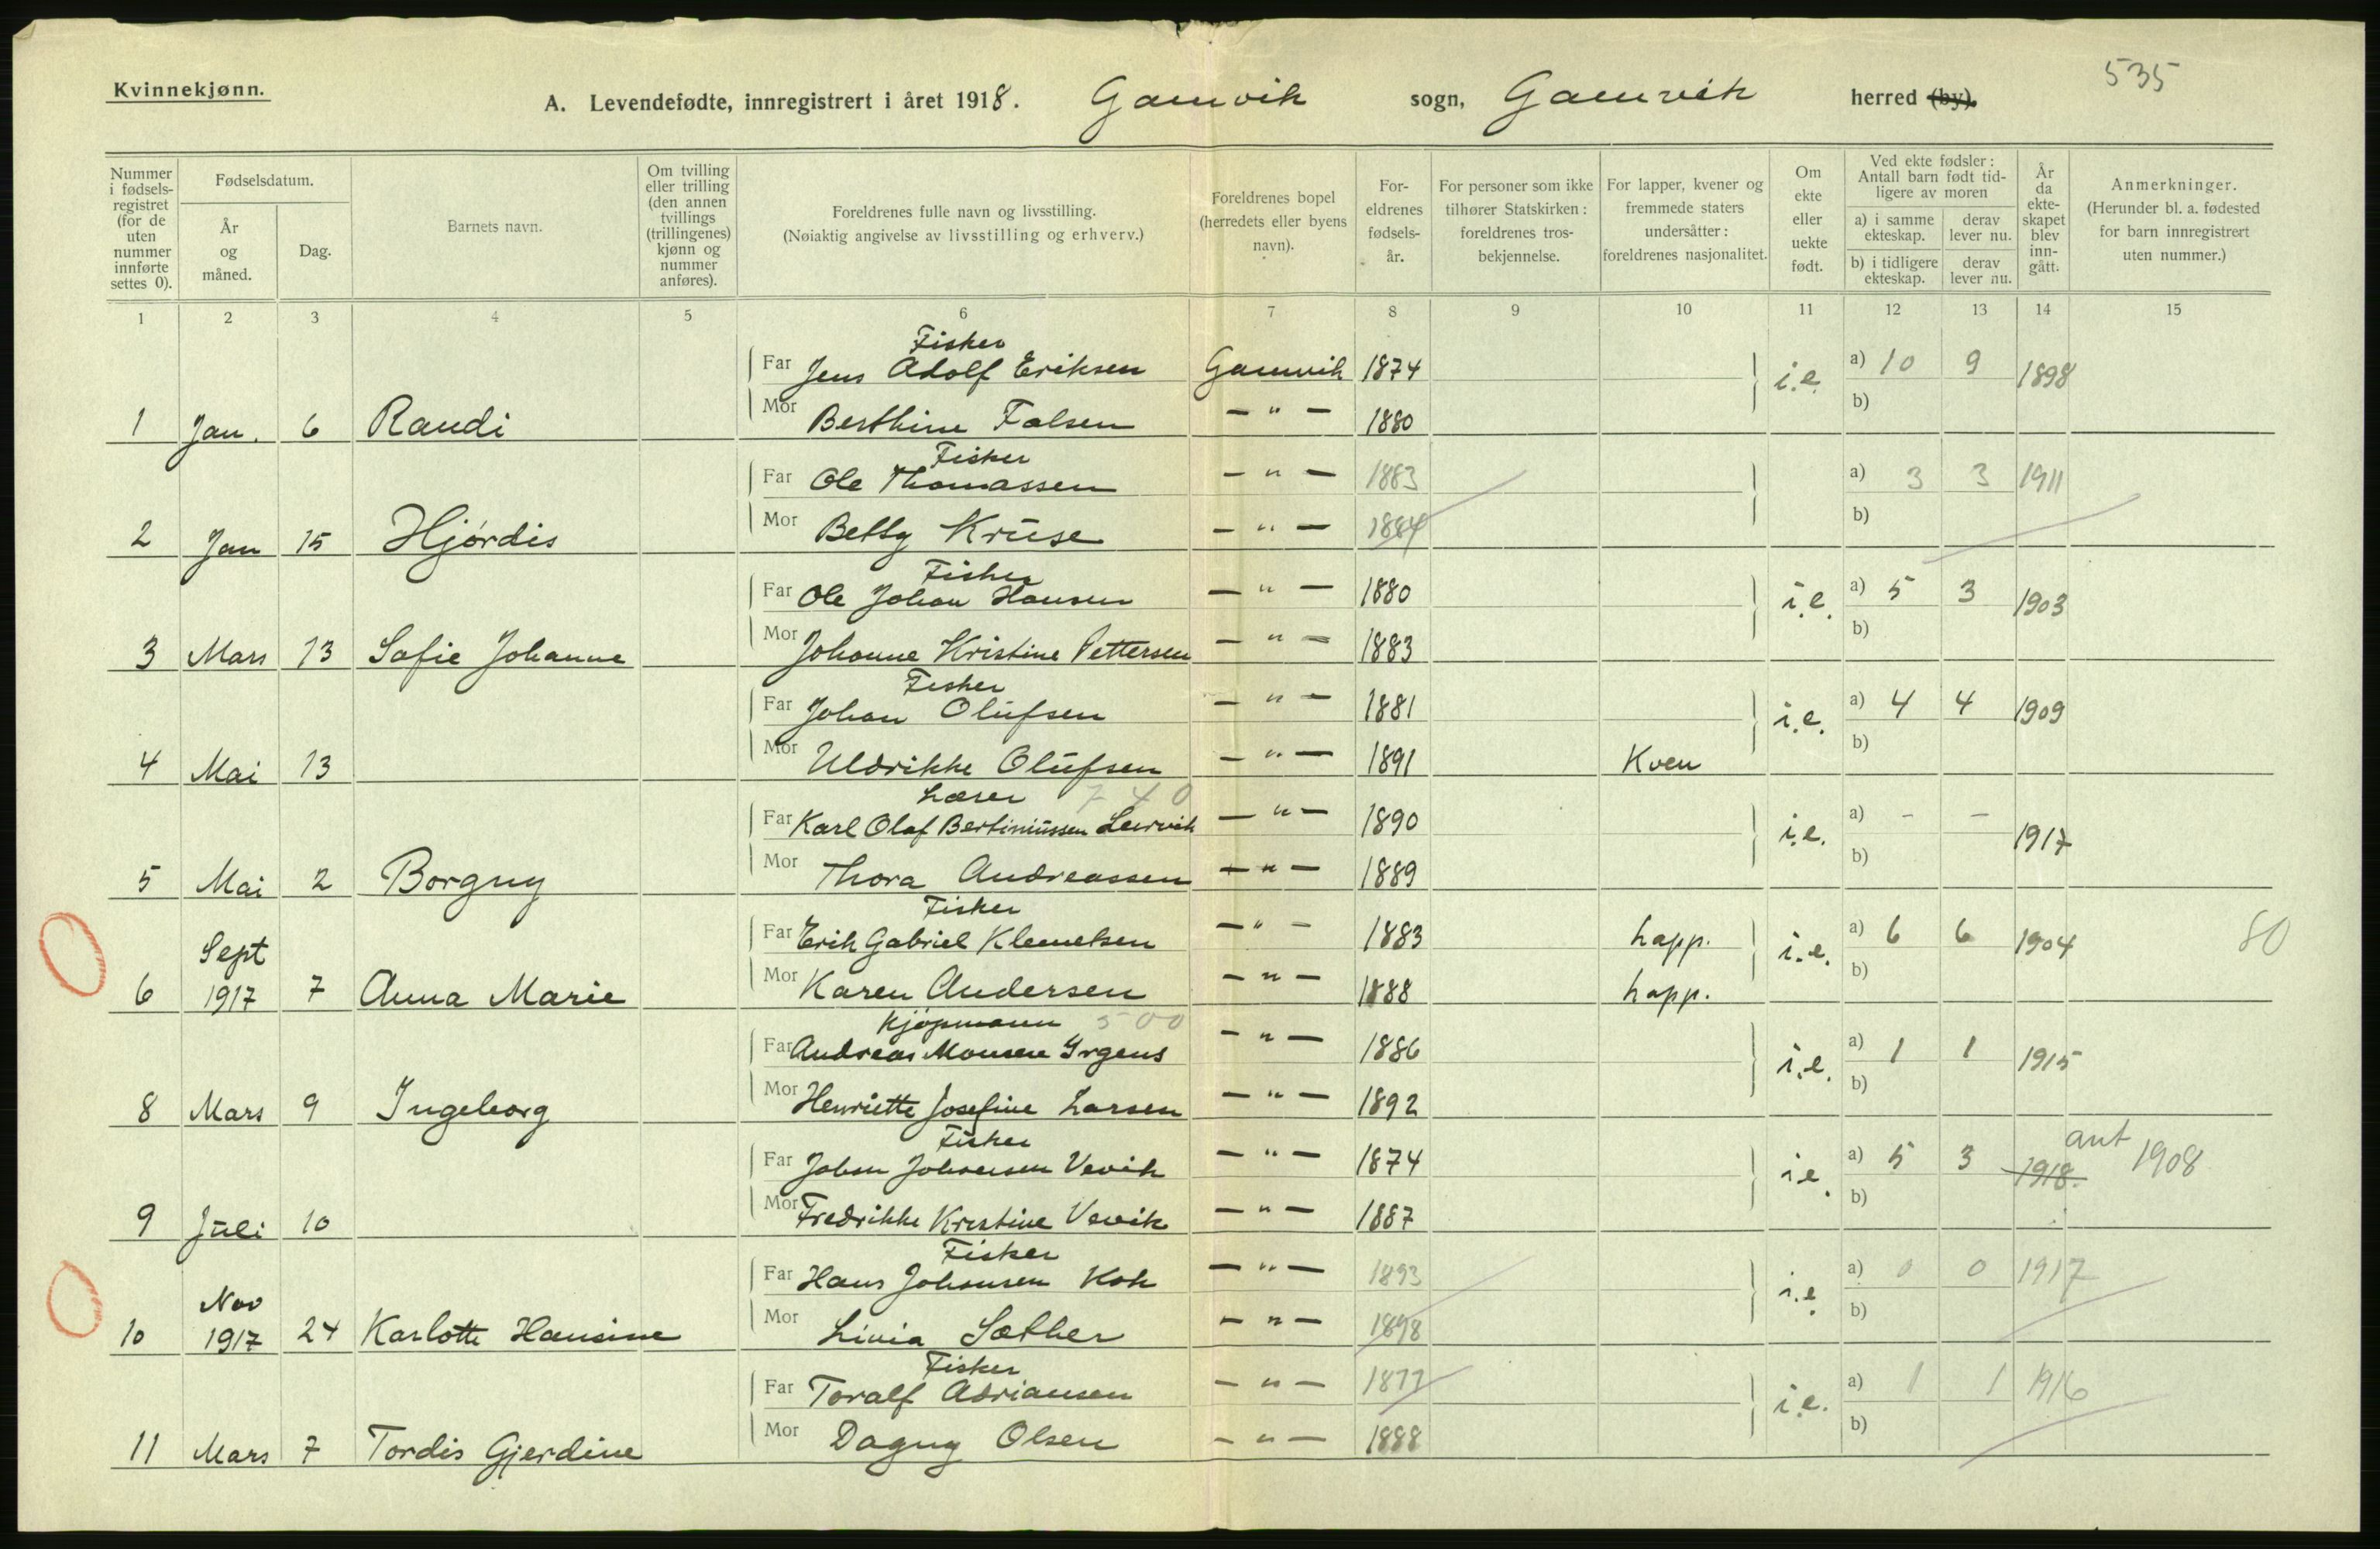 Kvinnekjønn.
A. Levendefødte, innregistrert i året 1918. Gamvik sogn, Gamvik herred (by).
535
Nummer i fødselsregistret (for de uten nummer innførte settes 0).
Fødselsdatum.
År og måned.
Dag.
Barnets navn.
Om tvilling eller trilling (den annen tvillings (trillingenes) kjønn og nummer anføres).
Foreldrenes fulle navn og livsstilling. (Nøiaktig angivelse av livsstilling og erhverv.)
Foreldrenes bopel (herredets eller byens navn).
Foreldrenes fødselsår.
For personer som ikke tilhører Statskirken: foreldrenes trosbekjennelse.
For lapper, kvener og fremmede staters undersåtter: foreldrenes nasjonalitet.
Om ekte eller uekte født.
Ved ekte fødsler: Antall barn født tidligere av moren
a) i samme ekteskap. derav lever nu.
b) i tidligere ekteskap. derav lever nu.
År da ekteskapet blev inngått.
Anmerkninger. (Herunder bl. a. fødested for barn innregistrert uten nummer.)
1 2 3 4 5 6 7 8 9 10 11 12 13 14 15
Fisker
Far Jens Adolf Eriksen Gamvik 1874 i.e. a) 10 9 1898
b)
1 Jan. 6 Randi Mor Berthine Falsen - " - 1880
Fisker
Far Ole Thomassen - " - 1883 a) 3 3 1911
b)
2 Jan 15 Hjørdis Mor Betsy Kruse - " - 1884
Fisker
Far Ole Johan Hansen - " - 1880 i.e. a) 5 3 1903
b)
3 Mars 13 Sofie Johanne Mor Johanne Kristine Pettersen - " - 1883
Fisker
Far Johan Olufsen - " - 1881 i.e. a) 4 4 1909
b)
4 Mai 13 Mor Uldrikke Olufsen - " - 1891 Kven
Lærer 740
Far Karl Olaf Bertiniussen Leirvik - " - 1890 i.e. a) - - 1917
b)
5 Mai 2 Borgny Mor Thora Andreassen - " - 1889
Fisker
Far Erik Gabriel Klemetsen - " - 1883 Lapp. i.e. a) 6 6 1904 80
b)
6 Sept 1917 7 Anna Marie Mor Karen Andersen - " - 1888 Lapp.
Kjøpmann 500
Far Andreas Monsen Irgens - " - 1886 i.e. a) 1 1 1915
b)
8 Mars 9 Ingeborg Mor Henriette Josefine Larsen - " - 1892
Fisker
Far Johan Johansen Vevik - " - 1874 i.e. a) 5 3 1918. ant 1908
b)
9 Juli 10 Mor Fredrikke Kristine Vevik - " - 1887
Fisker
Far Hans Johansen Kok - " - 1893 i.e. a) 0 0 1917
b)
10 Nov 1917 24 Karlotte Hansine Mor Livia Sæther - " - 1898
Fisker
Far Toralf Adriansen - " - 1877 i.e. a) 1 1 1916
b)
11 Mars 7 Tordis Gjerdine Mor Dagny Olsen - " - 1888